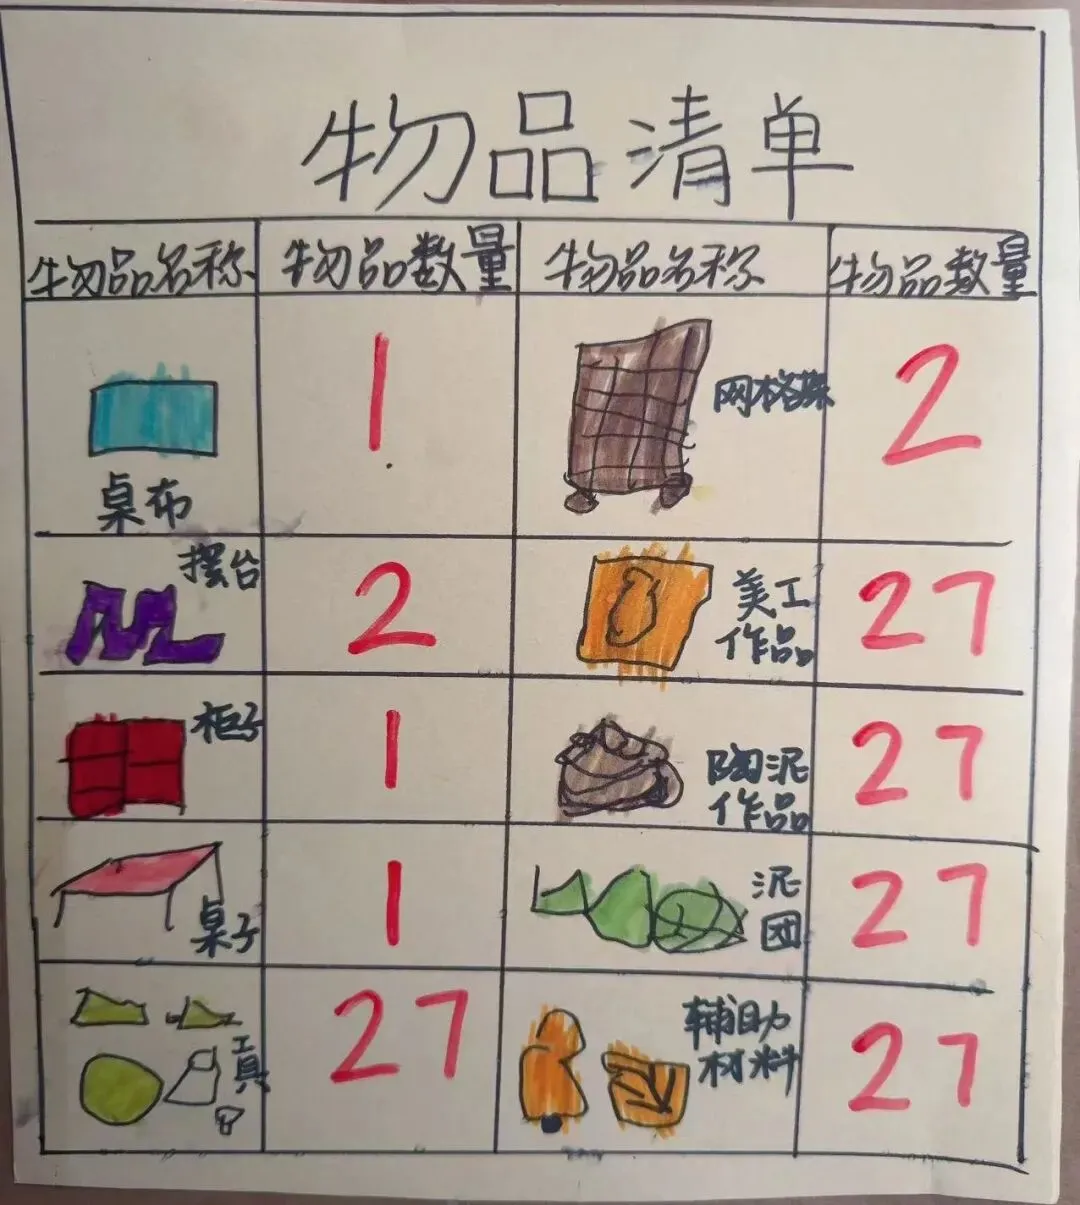 物品清单
物品名称 物品数量 物品名称 物品数量
桌布 1 网格 2
摆台 2 美工
作品 27
柜子 1 陶泥
作品 27
桌子 1 泥
团 27
工具 27 辅助
材料 27